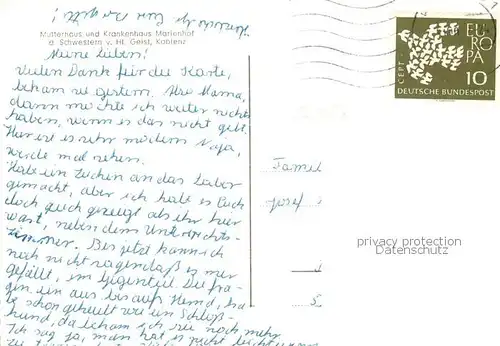 Mutterhaus und Krankenhaus Marienhof
d. Schwestern v. Hl. Geist, Koblenz
Meine Lieben!
Vielen Dank für die Karte,
bekam sie gestern. Also Mama,
dann möchte ich weiter nichts
haben, wenn es das nicht gibt.
Hier ist es sehr modern. Naja,
werde mal sehen.
Habe ein Zeichen an das Labor
gemacht, aber ich habe es Euch
doch gezeigt als ihr hier
wart, neben dem Unterrichts-
zimmer. Bis jetzt kann ich
noch nicht sagen daß es mir
gefällt, im Gegenteil. Die fra-
gen ein aus bis aufs Hemd, ha-
be schon geheult wie ein Schloß-
hund, da bekam ich sie noch mehr
Ich sag ja, man hat es nicht leicht
CEPT
EUROPA
10
DEUTSCHE BUNDESPOST
Famil
Josef
privacy protection
Datenschutz